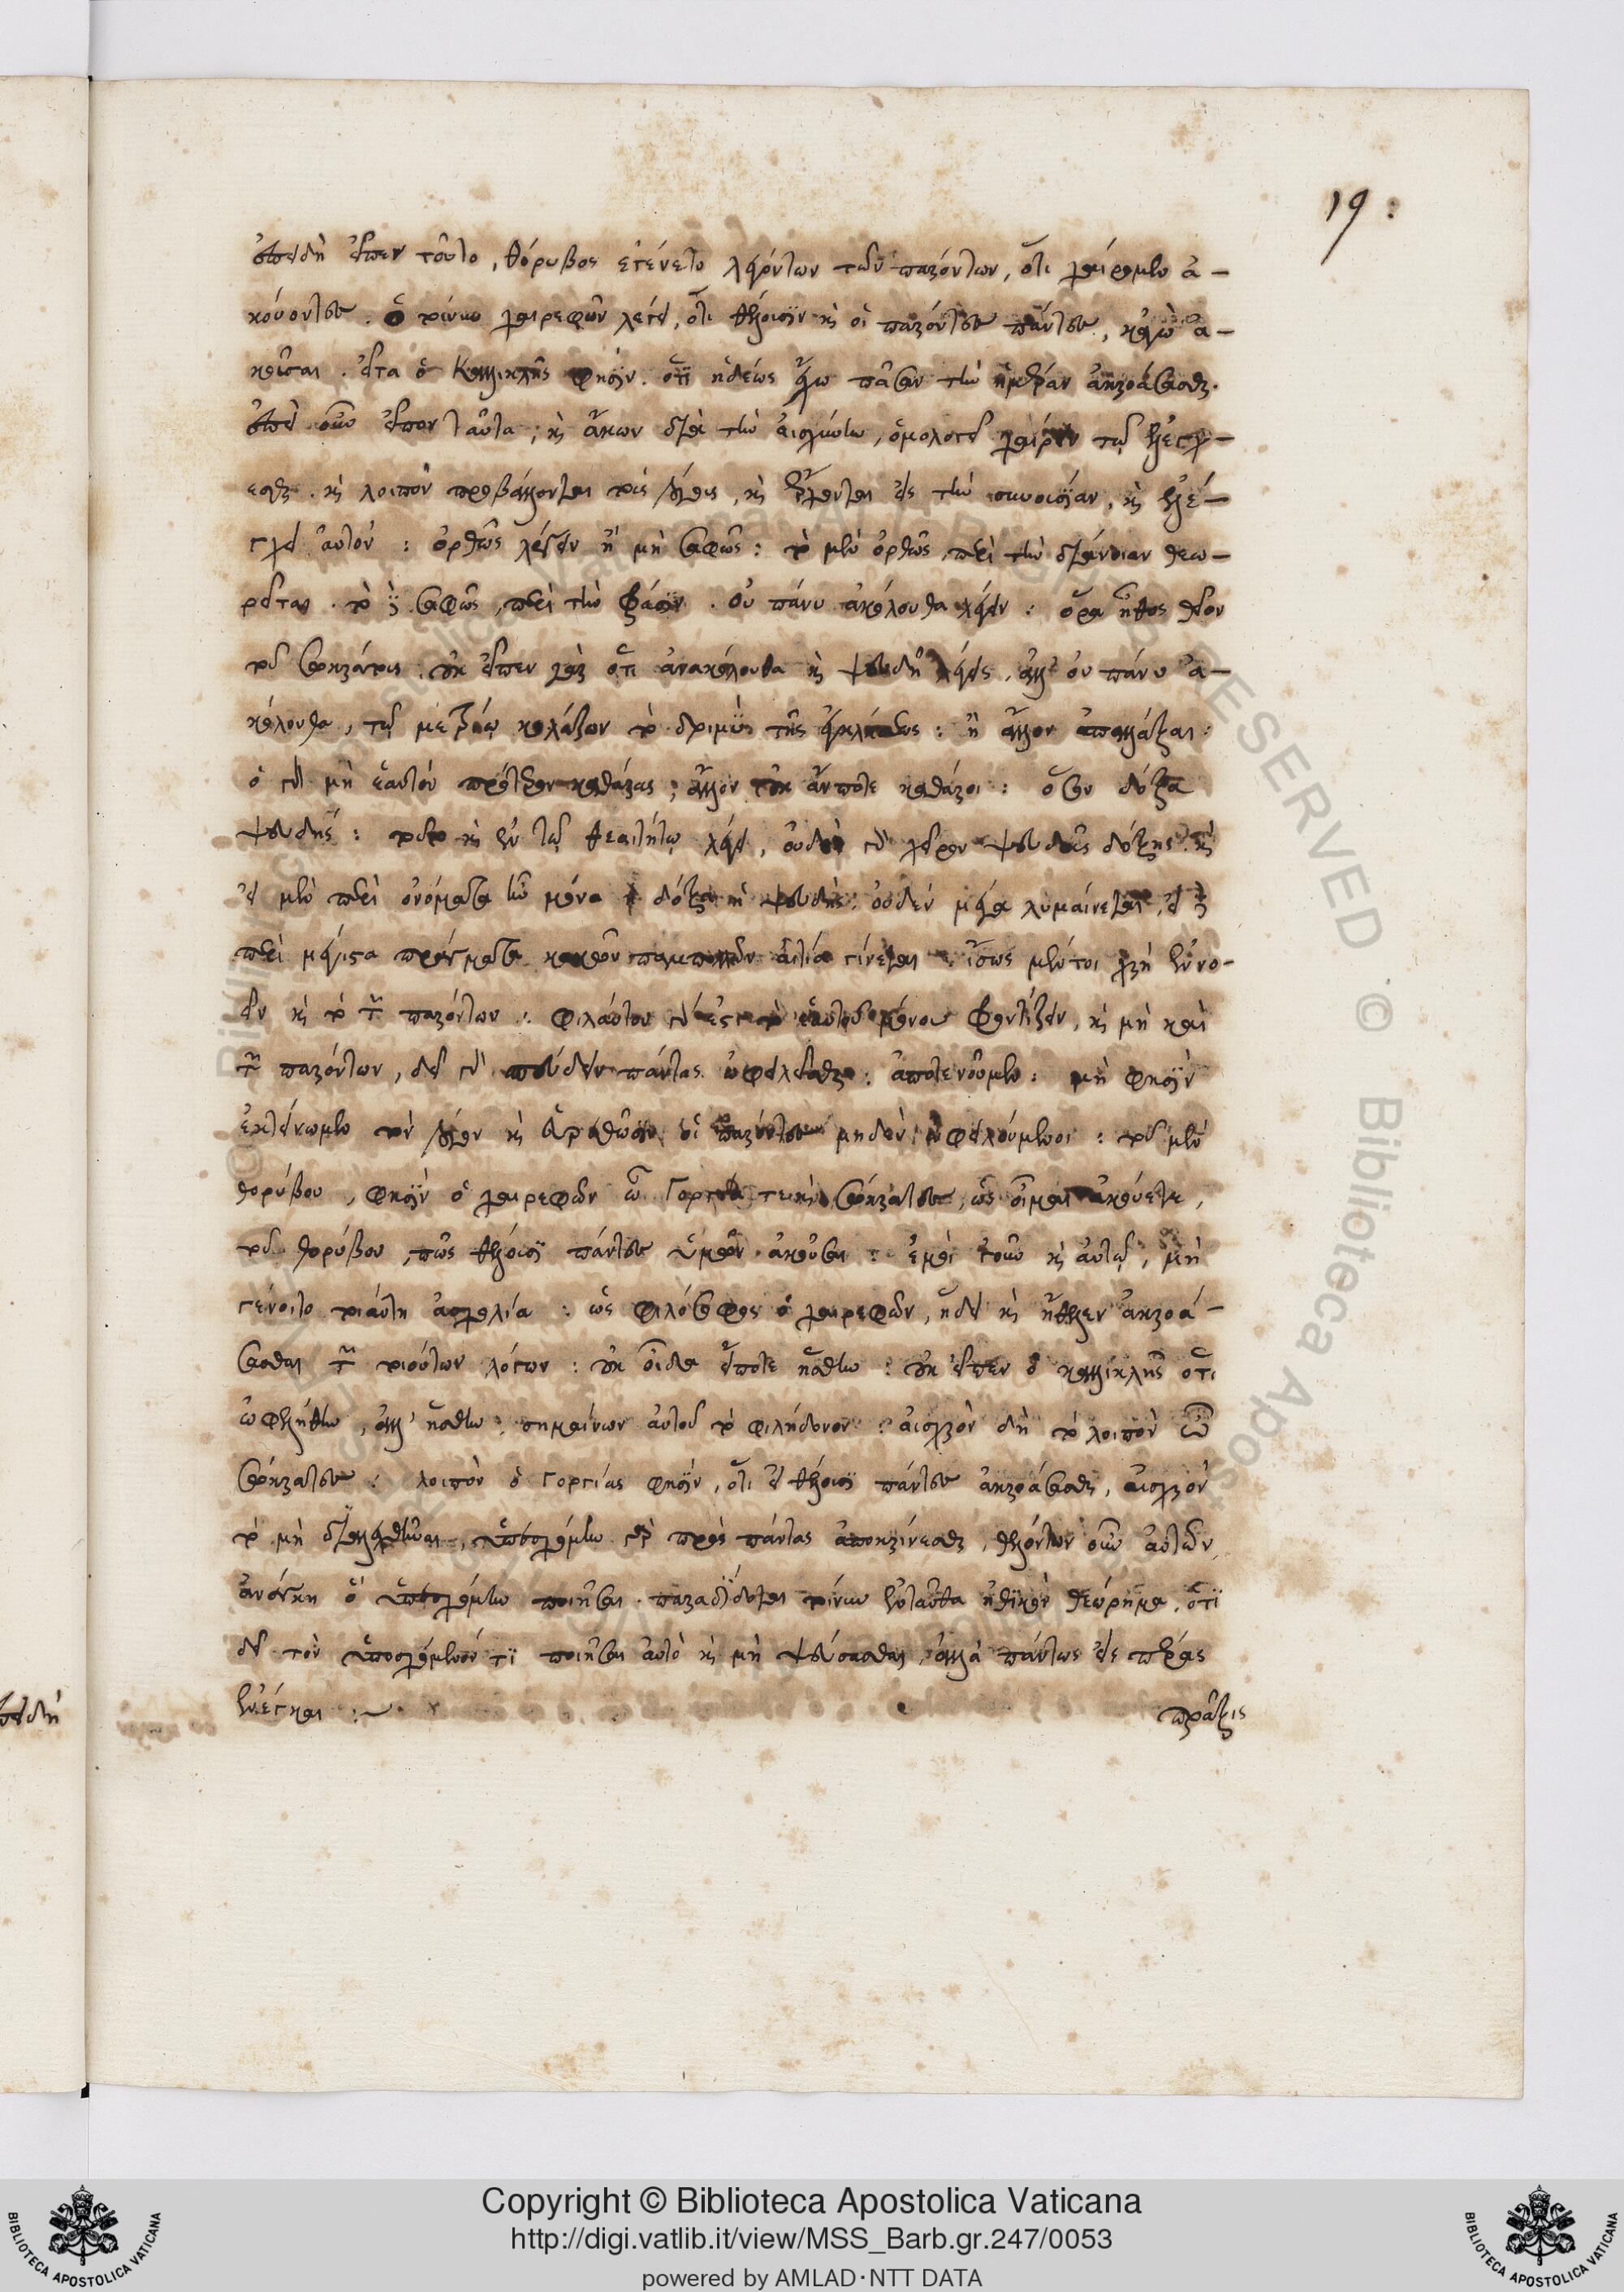 19:
ἐπειδὴ εἶπεν τοῦτο, θόρυβος ἐγένετο λεγόντων τῶν παρόντων, ὅτι χαίρομεν ἀ-
κούοντες. ὁ τοίνυν χαιρεφῶν λέγει, ὅτι θέλουσιν καὶ οἱ παρόντες πάντες, κἀγὼ ἀ-
κοῦσαι. εἶτα ὁ Καλλικλῆς φησὶν. ὅτι ἡδέως ἔχω πᾶσαν τὴν ἡμέραν ἀκροάσασθαι.
ἐπεὶ οὖν εἶπον ταῦτα, καὶ ἄκων διὰ τὴν αἰσχύνην, ὁμολογεῖ χαίρειν τῷ ἐλέγχ-
εσθαι. καὶ λοιπὸν προβάλλονται τοὺς λόγους, καὶ ἔρχονται εἰς τὴν συνουσίαν, καὶ ἐλέ-
γχει αὐτόν: ὀρθῶς λέγειν ἢ μὴ σαφῶς: τὸ μὲν ὀρθῶς, περὶ τὴν διάνοιαν θεω-
ρεῖται. τὸ δὲ σαφῶς, περὶ τὴν φράσιν. οὐ πάνυ ἀκόλουθα λέγειν: ὅρα ἦθος θεῖον
τοῦ σωκράτους. οὐκ εἶπεν γὰρ ὅτι ἀνακόλουθα καὶ ψευδῆ λέγεις, ἀλλ' οὐ πάνυ ἀ-
κόλουθα, τῷ μετρίῳ κολάζων τὸ δριμὺ τῆς ἐγκλήσεως: ἢ ἄλλον ἀπαλλάξαι:
ὁ γὰρ μὴ ἑαυτὸν πρότερον καθάρας, ἄλλον οὐκ ἄν ποτε καθάροι: ὅσον δόξα
ψευδής: τοῦτο καὶ ἐν τῷ θεαιτήτῳ λέγει, οὐδὲν γὰρ χεῖρον ψευδοῦς δόξης. καὶ
εἰ μὲν περὶ ὀνόματα ἦν μόνα ἡ δόξα ἡ ψευδὴς, οὐδὲν μέγα λυμαίνεται, εἰ δὲ
περὶ μέγιστα πράγματα κακῶν παμπόλλων αἰτία γίνεται. ἴσως μέντοι χρὴ ἐννο-
εῖν καὶ τὸ τῶν παρόντων: φιλαύτου γάρ ἐστι τὸ ἑαυτοῦ μόνου φροντίζειν, καὶ μὴ καὶ
τῶν παρόντων, δεῖ γὰρ σπεύδειν πάντας ὠφελεῖσθαι: ἀποτενοῦμεν: μὴ φησὶν
ἐκτείνωμεν τὸν λόγον καὶ βαρηθῶσιν οἱ παρόντες μηδὲν ὠφελούμενοι: τοῦ μὲν
θορύβου, φησὶν ὁ χαιρεφῶν ὦ Γοργία τε καὶ σώκρατες, ὡς οἶμαι ἀκούετε,
τοῦ θορύβου, πῶς θέλουσι πάντες ὑμῶν ἀκοῦσαι: ἐμοὶ γοῦν καὶ αὐτῷ, μὴ
γένοιτο τοιαύτη ἀσχολία: ὡς φιλόσοφος ὁ χαιρεφῶν, ᾔδει καὶ ἤθελεν ἀκροά-
σασθαι τῶν τοιούτων λόγων: οὐκ οἶδα εἴποτε ἥσθην: οὐκ εἶπεν ὁ καλλικλῆς ὅτι
ὠφελήθην, ἀλλ' ἥσθην, σημαίνων αὐτοῦ τὸ φιλήδονον: αἰσχρὸν δὴ τὸ λοιπὸν ὦ
σώκρατες: λοιπὸν ὁ γοργίας φησὶν, ὅτι εἰ θέλουσι πάντες ἀκροάσασθαι, αἰσχρὸν
τὸ μὴ διαλεχθῆναι, ὑπεσχόμην γὰρ πρὸς πάντας ἀποκρίνεσθαι, θελόντων οὖν αὐτῶν,
ἀνάγκη ὃ ὑπεσχόμην ποιῆσαι. παραδίδοται τοίνυν ἐνταῦθα ἠθικὸν θεώρημα, ὅτι
δεῖ τὸν ὑποσχόμενόν τι ποιῆσαι αὐτὸ καὶ μὴ ψεύσασθαι, ἀλλὰ πάντως εἰς πέρας
ἐνέγκαι:~
πρᾶξις
πειδὴ
Copyright © Biblioteca Apostolica Vaticana
http://digi.vatlib.it/view/MSS_Barb.gr.247/0053
powered by AMLAD·NTT DATA
BIBLIOTECA APOSTOLICA VATICANA
BIBLIOTECA APOSTOLICA VATICANA